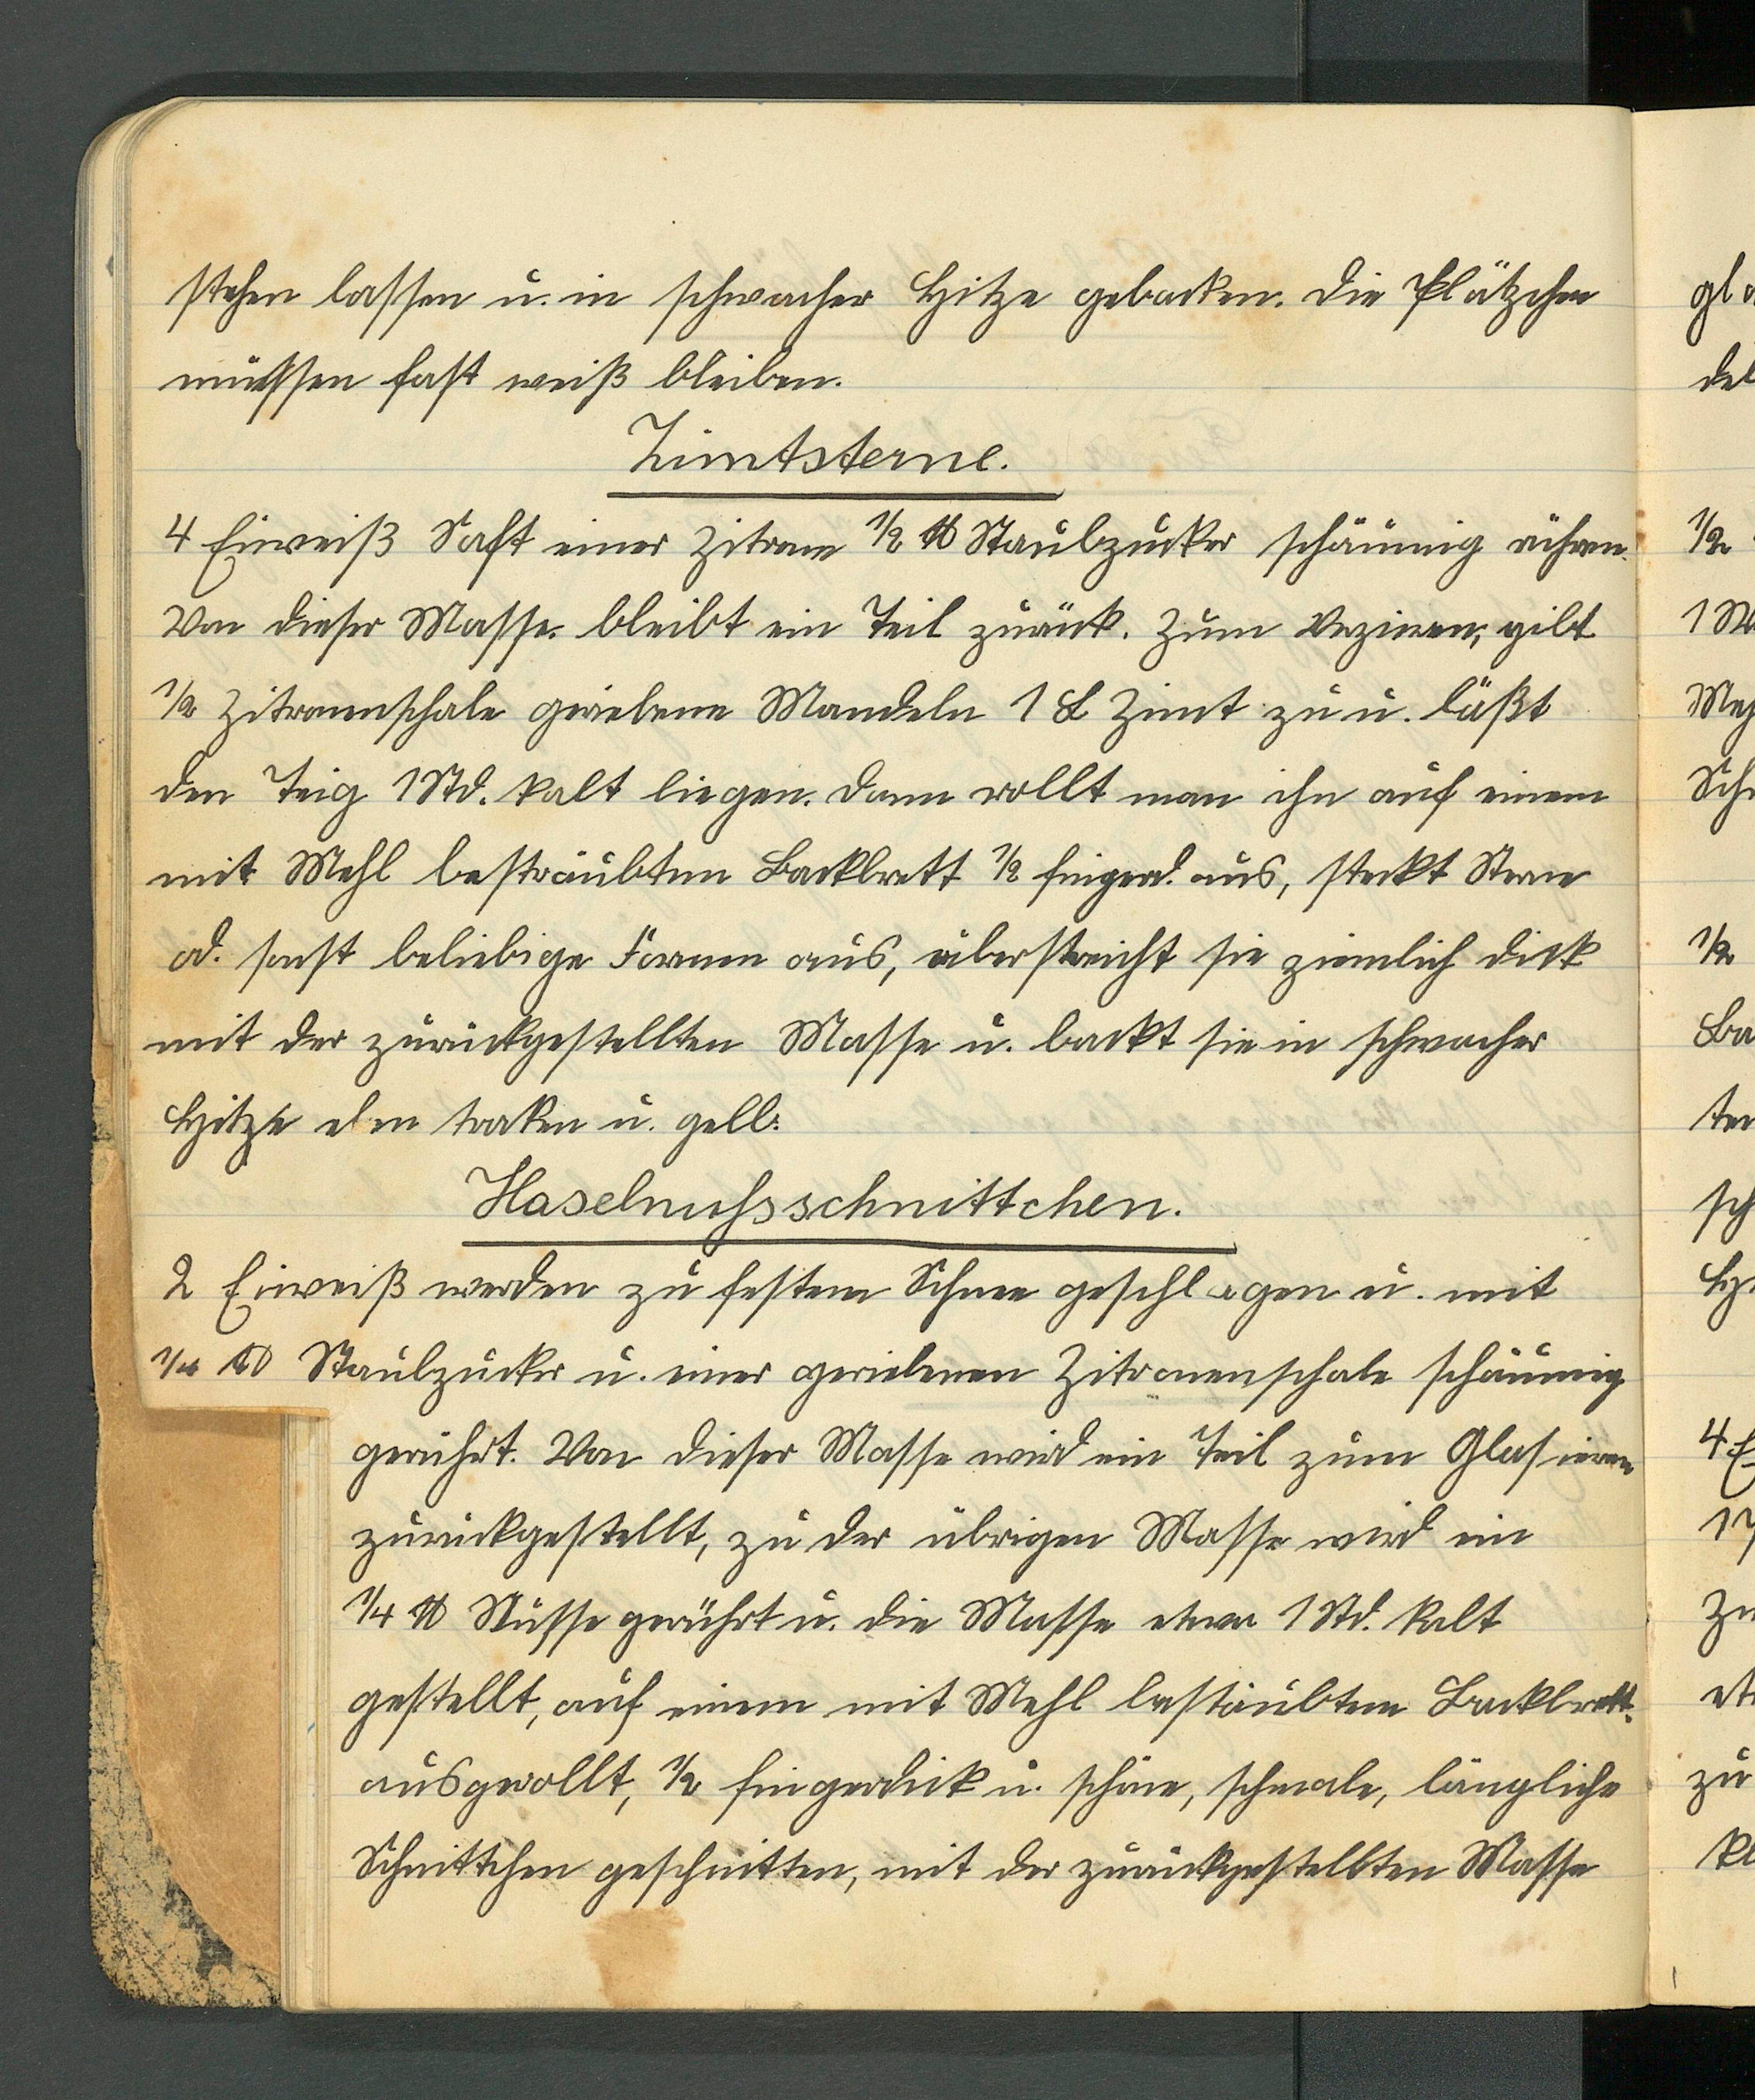 stehen lassen u. in schwacher Hitze gebacken. Die Plätzchen
müssen fast weiß bleiben.
Zimtsterne.
4 Eiweiß Saft einer Zitrone 1/2 ℔ Staubzucker schäumig rühren.
Von dieser Masse bleibt ein Teil zurück. Zum Verzieren, gibt
1/2 Zitronenschale geriebene Mandeln 1 L Zimt zu u. läßt
den Teig 1 Std. kalt liegen. Dann rollt man ihn auf einem
mit Mehl bestäubten Backbrett 1/2 fingerd. aus, steckt Sterne
od. sonst beliebige Formen aus, überstreicht sie ziemlich dick
mit der zurückgestellten Masse u. backt sie in schwacher
Hitze eben trocken u. gelb.
Haselnußschnittchen.
2 Eiweiß werden zu festem Schnee geschlagen u. mit
1/4 ℔ Staubzucker u. einer geriebenen Zitronenschale schäumig
gerührt. Von dieser Masse wird ein Teil zum Glasieren
zurückgestellt, zu der übrigen Masse wird ein
1/4 ℔ Nüsse gerührt u. die Masse etwa 1 Std. kalt
gestellt, auf einem mit Mehl bestäubtem Backbrett
ausgerollt, 1/2 fingerdick u. schöne, schmale, längliche
Schnittchen geschnitten, mit der zurückgestellten Masse